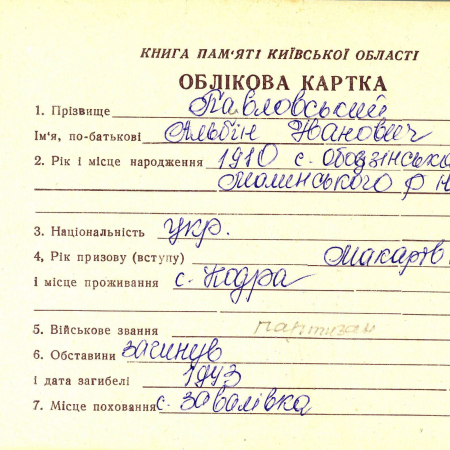 КНИГА ПАМ'ЯТІ КИЇВСЬКОЇ ОБЛАСТІ
ОБЛІКОВА КАРТКА
1. Прізвище Павловський
Ім'я, по-батькові Альбін Іванович
2. Рік і місце народження 1910 с.
Молинського р н
3. Національність укр.
4, Рік призову (вступу) Макарів
і місце проживання с. Кодра
5. Військове звання партизан
6. Обставини загинув
і дата загибелі 1943
7. Місце поховання с. Завалівка